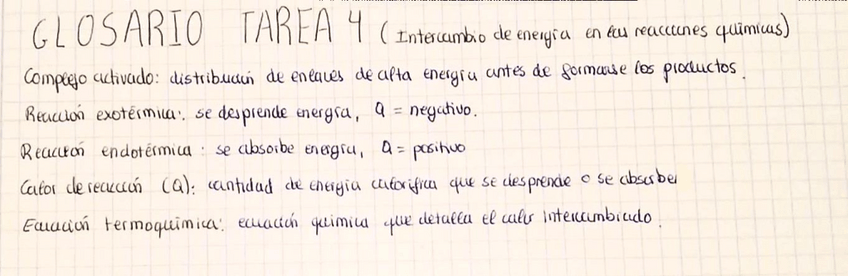 GLOSARIO TAREA 4 (Intercambio de energía en las reacciones químicas)
Complejo activado: distribución de enlaces de alta energía antes de formarse los productos.
Reacción exotérmica: se desprende energía, Q = negativo.
Reacción endotérmica: se absorbe energía, Q = positivo
Calor de reacción (Q): cantidad de energía calorífica que se desprende o se absorbe
Ecuación termoquímica: ecuación química que detalla el calor intercambiado.